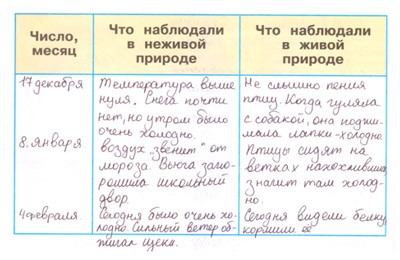 Число,
месяц
Что наблюдали
в неживой
природе
Что наблюдали
в живой
природе
17 декабря
Температура выше
нуля. Снега почти
нет, но утром было
очень холодно.
Не слышно пения
птиц. Когда гуляла
с собакой, она поджи-
мала лапки-холодно.
8. Января
воздух „звенит" от
мороза. Вьюга запо-
рошила школьный
двор.
Птицы сидят на
ветках нахохлившись,
значит там холод-
но.
4 февраля.
Сегодня было очень хо-
лодно. Сильный ветер об-
жигал щеки.
Сегодня видели белку,
кормили её